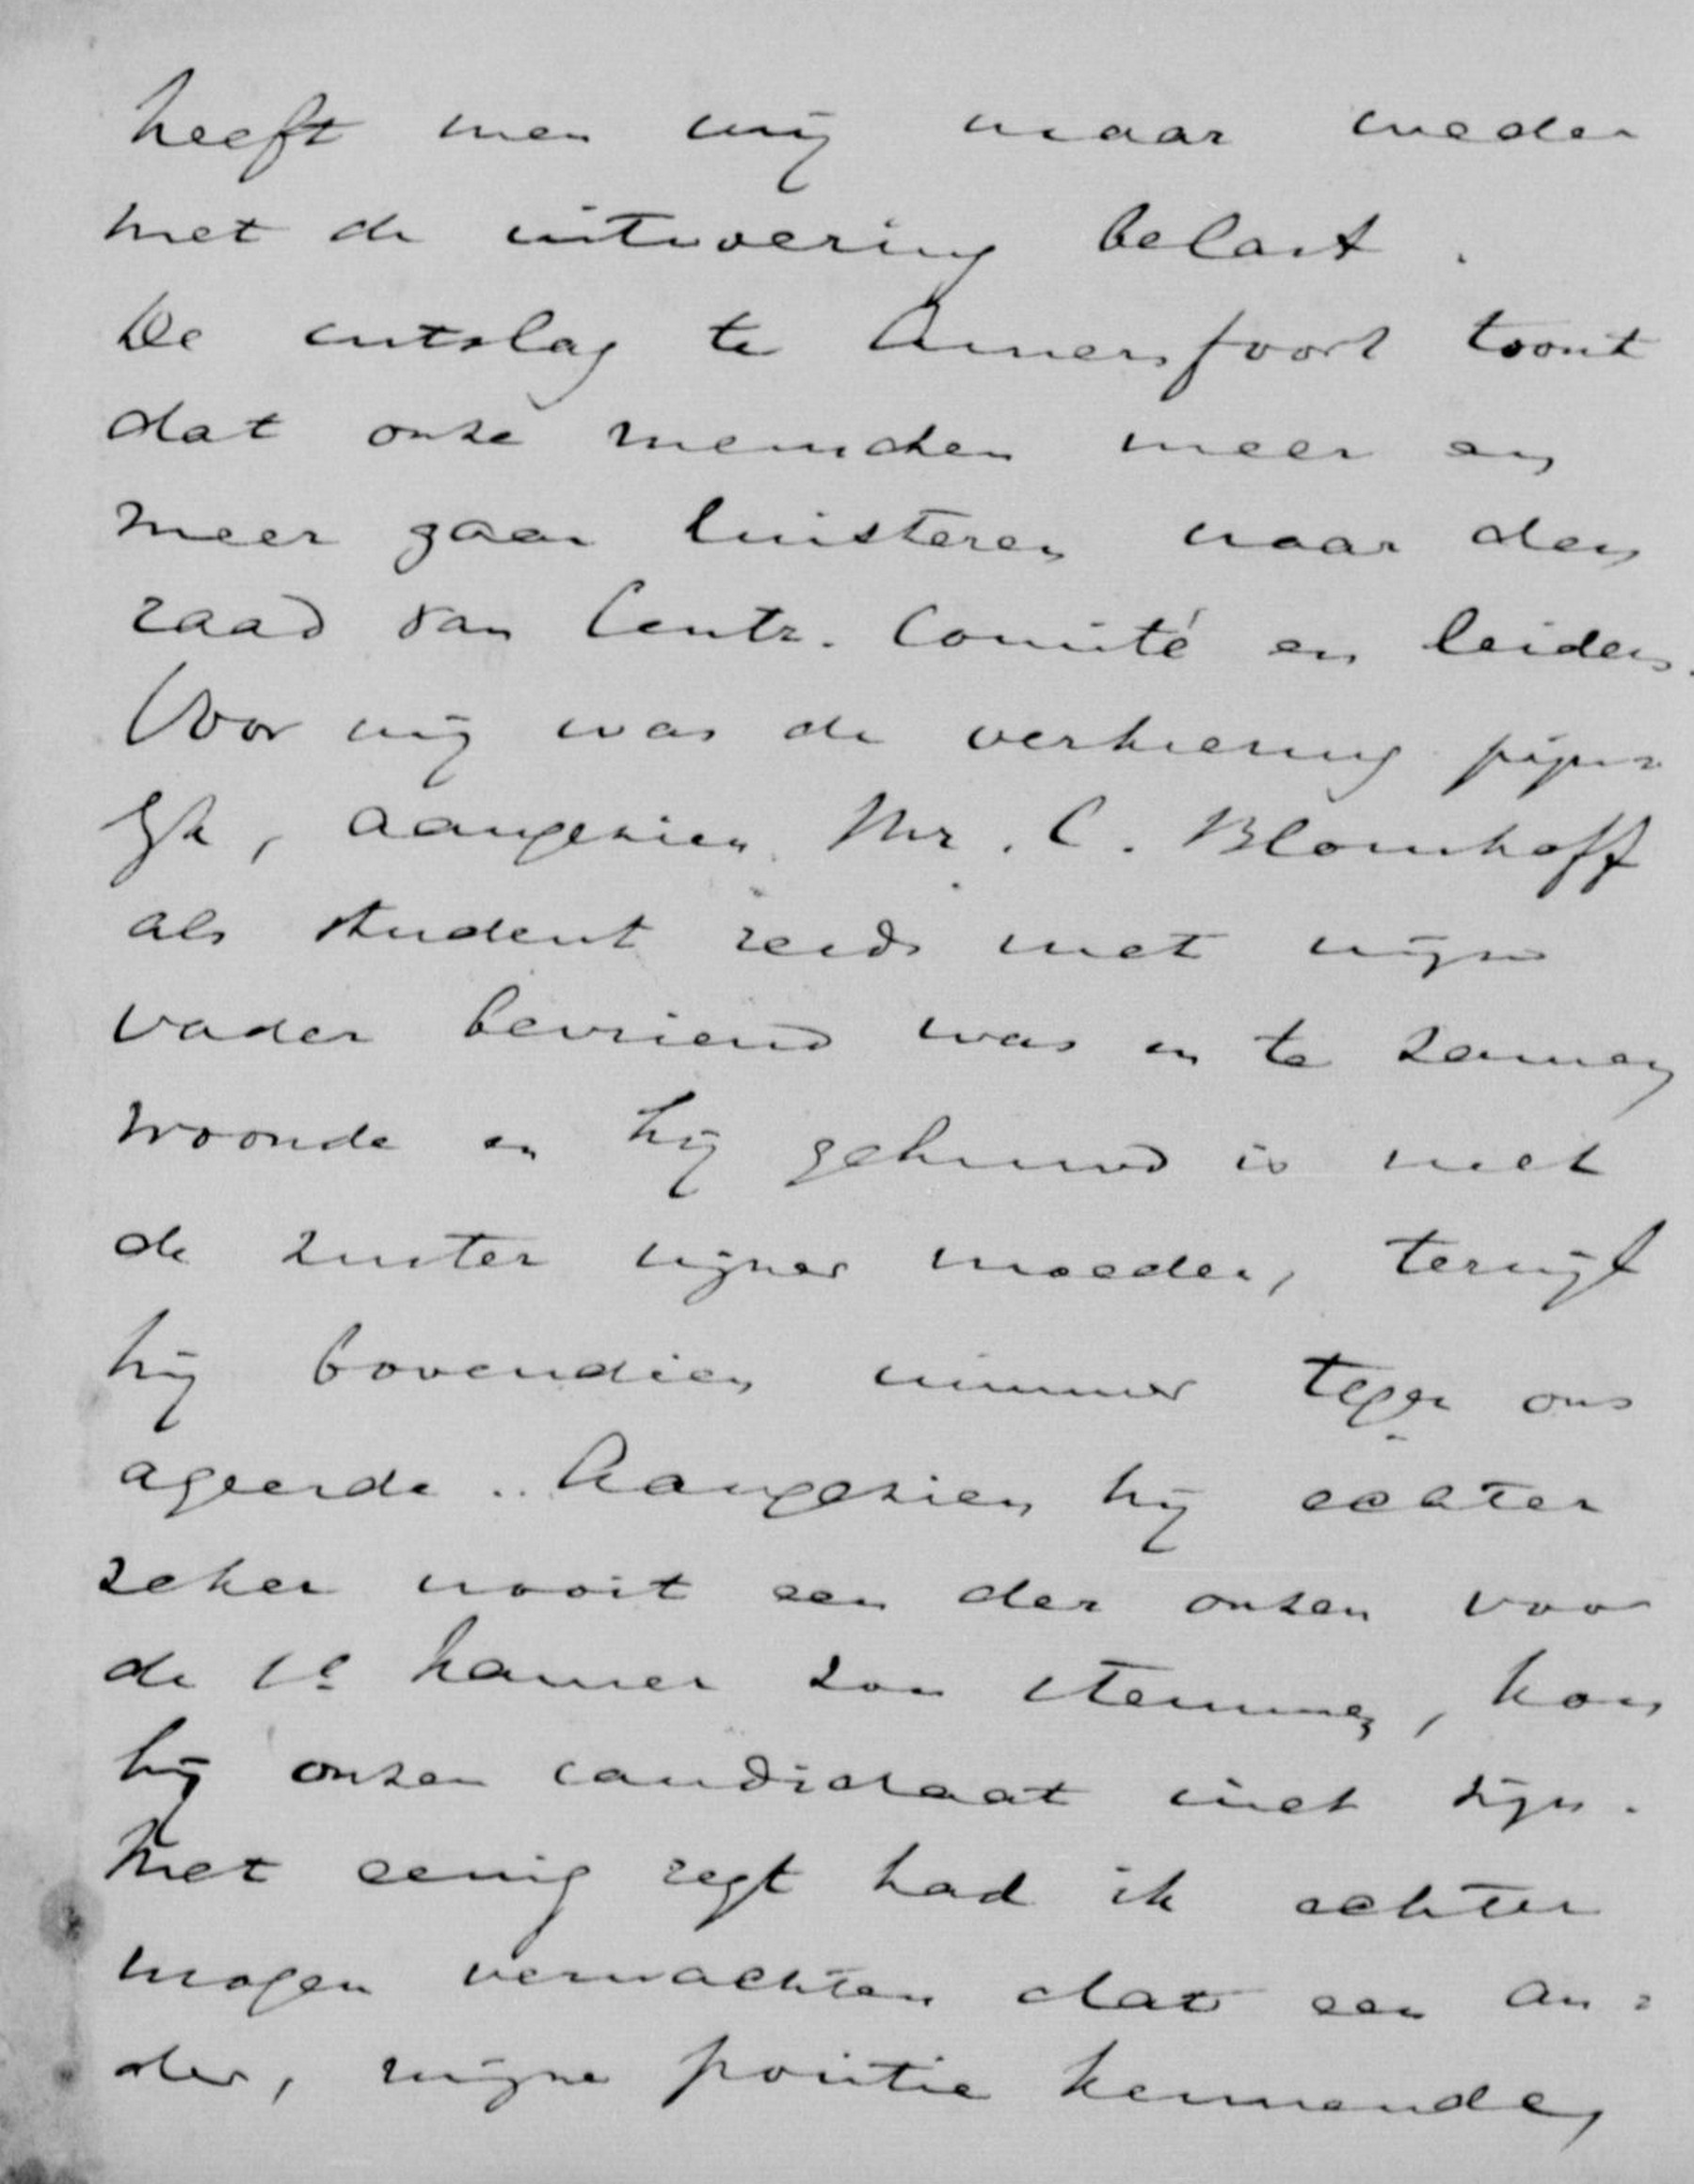 heeft men mij maar weder
met de uitvoering belast.
De uitslag te Amersfoort toont
dat onze menschen meer en
meer gaan luisteren naar den
raad van Centr. Comité en leiders.
Voor mij was de verkiezing pijn=
lijk, aangezien Mr. C. Blomhoff
als student reeds met mijn
vader bevriend was en te zamen
woonde en hij gehuwd is met
de zuster mijner moeder, terwijl
hij bovendien nimmer tegen ons
ageerde. Aangezien hij echter
zeker nooit een der onzen voor
de 1e kamer zou stemmen, kon
hij onzen candidaat niet zijn.
Met eenig regt had ik echter
mogen verwachten dat een an=
der, mijne positie kennende,